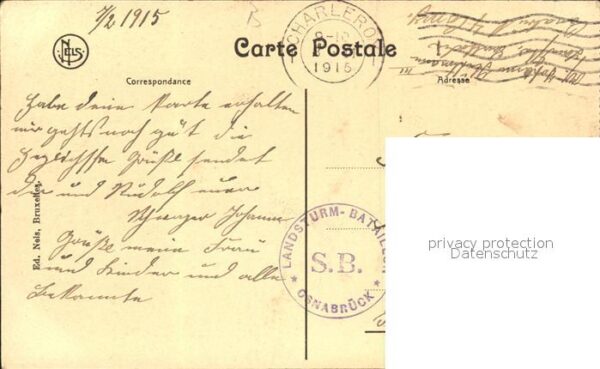 7/2 1915
B
NELS
CHARLEROI
1915
Carte Postale
Correspondance
Adresse
Habe deine Karte erhalten
mir gehts noch gut die
herzlichsten Grüße sendet
dir und Rudolf euer
Schwager Johann
Grüße meine Frau
und Kinder und alle
Bekannte
Ed. Nels, Bruxelles.
LANDSTURM-BATAILLON
S.B.
* OSNABRÜCK *
privacy protection
Datenschutz